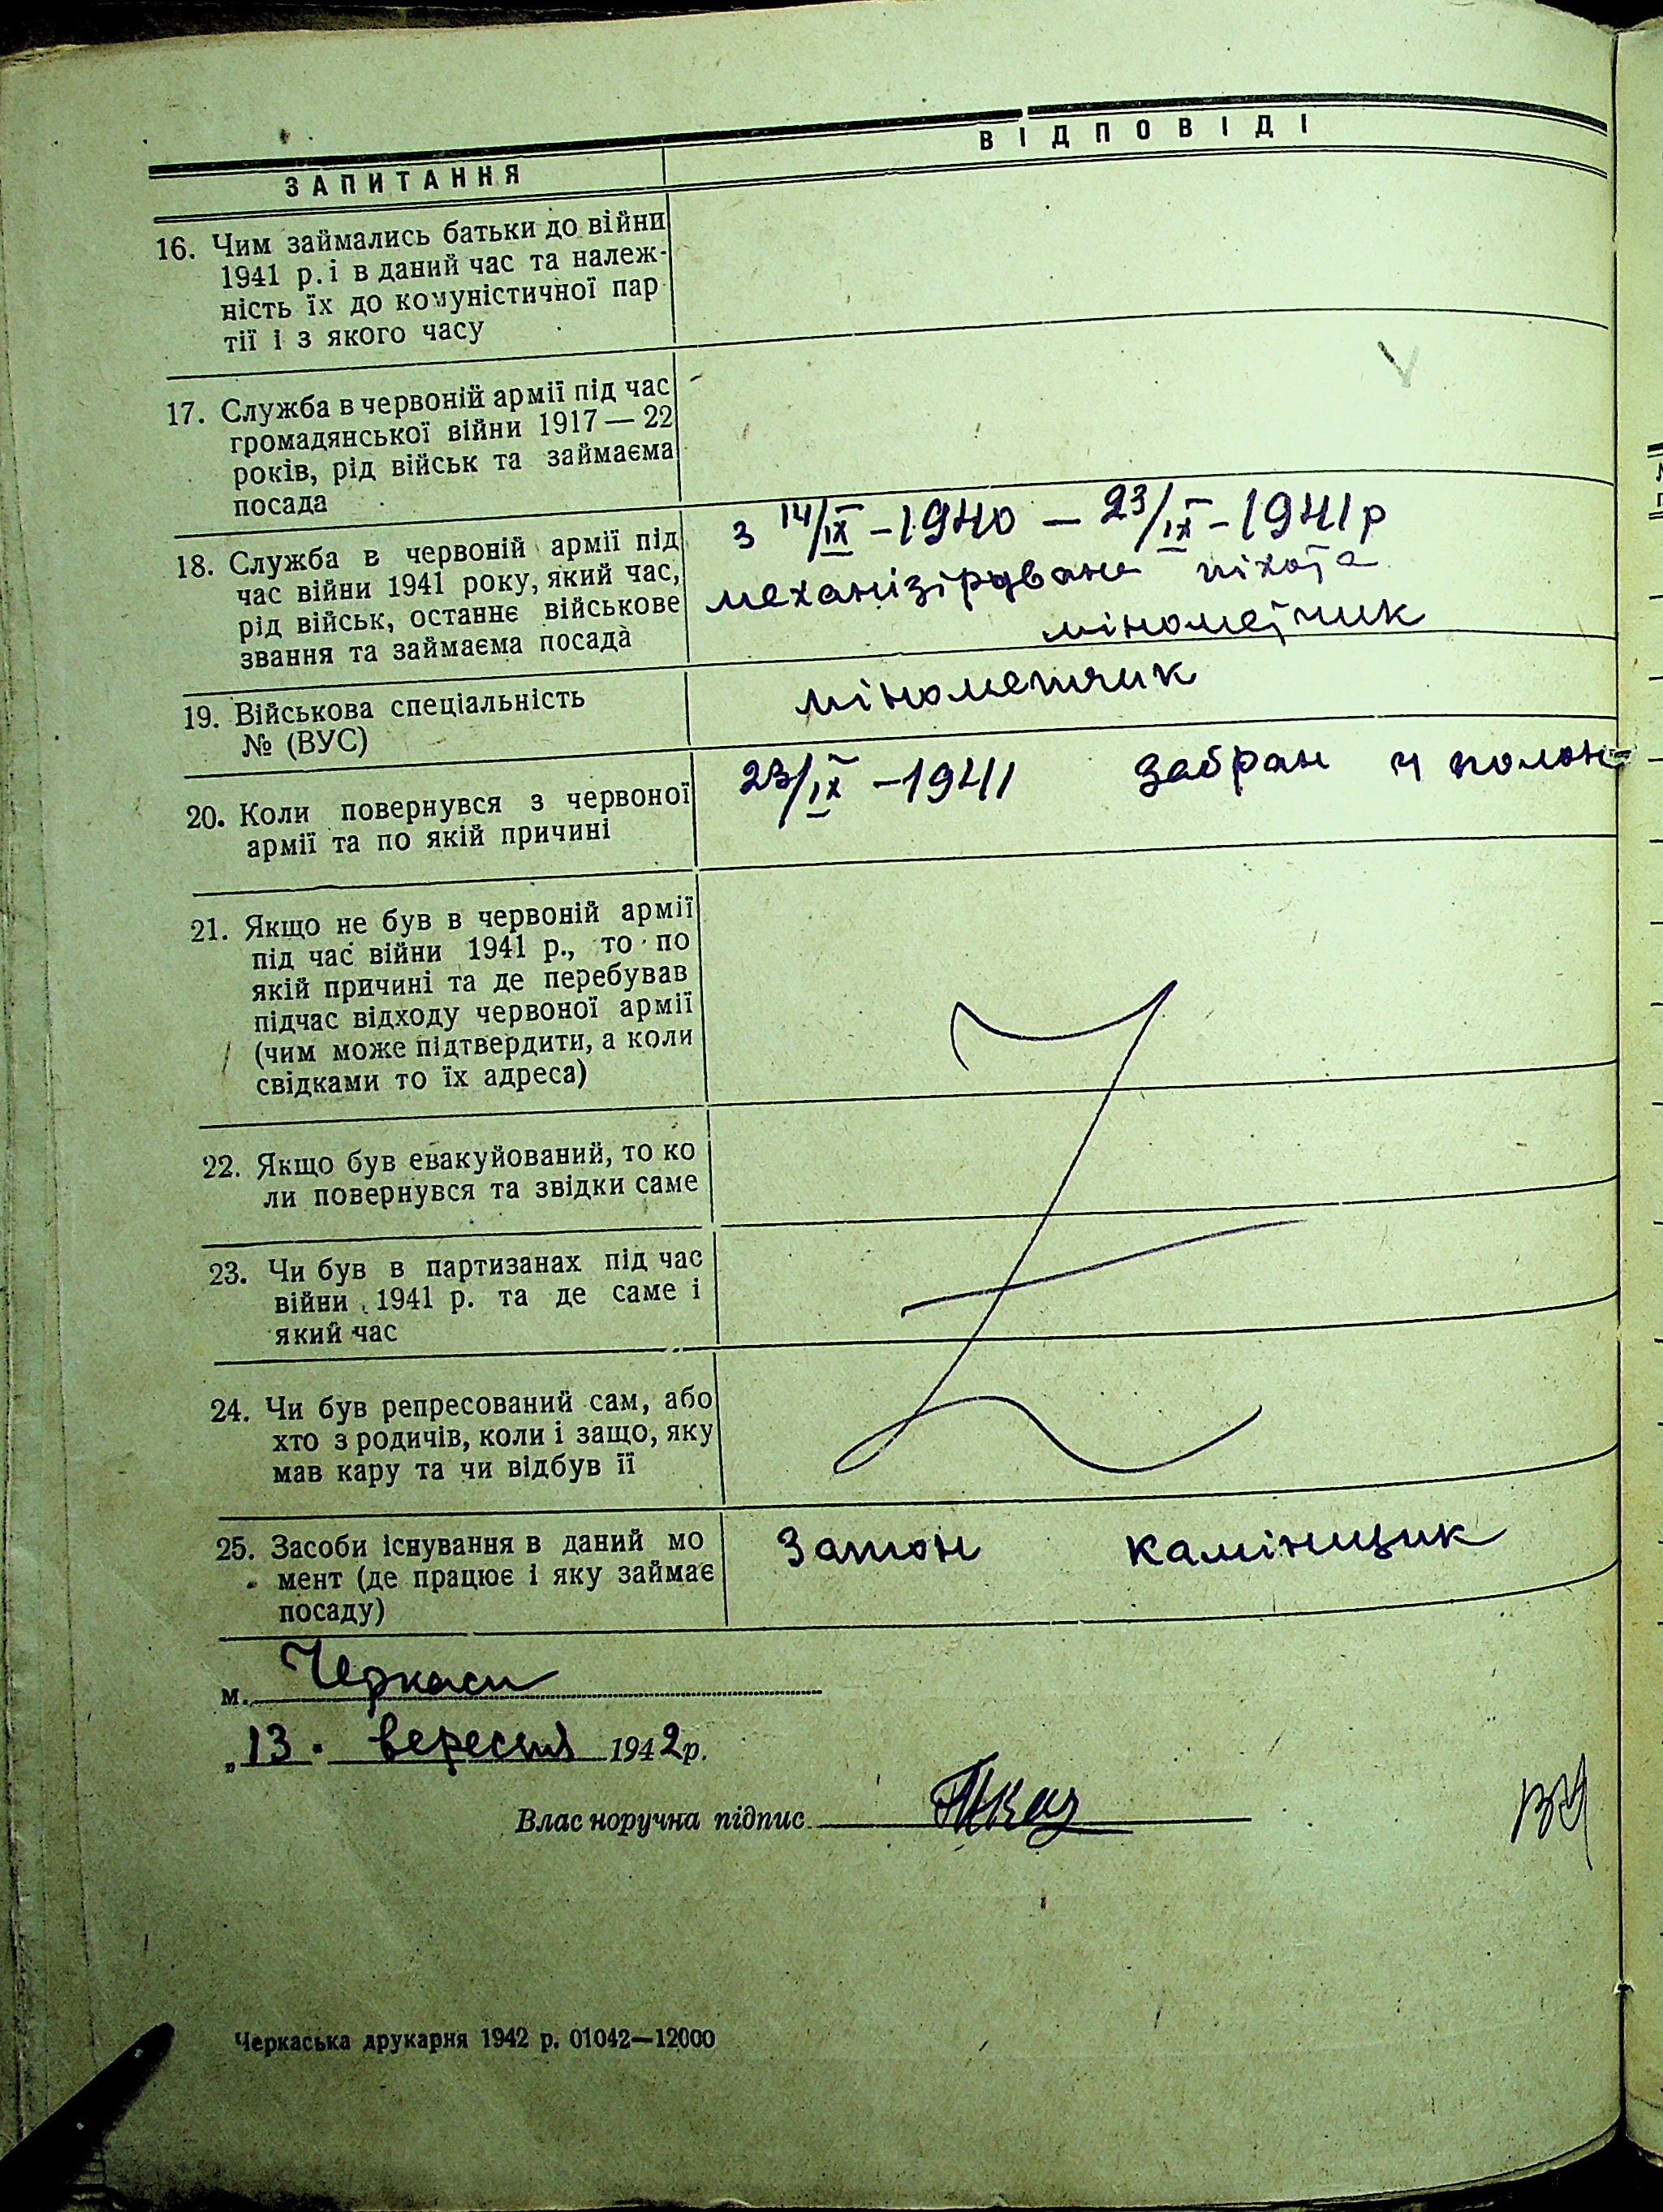 ЗАПИТАННЯ
ВІДПОВІДІ
16. Чим займались батьки до війни
1941 р. і в даний час та належ-
ність їх до комуністичної пар
тії і з якого часу
17. Служба в червоній армії під час
громадянської війни 1917 — 22
років, рід військ та займаєма
посада
18. Служба в червоній армії під
час війни 1941 року, який час,
рід військ, останнє військове
звання та займаєма посада
з 14/IX - 1940 — 23/IX - 1941 р
механізірована піхота
мінометчик
19. Військова спеціальність
№ (ВУС)
мінометчик
20. Коли повернувся з червоної
армії та по якій причині
23/IX - 1941 забран у полон
21. Якщо не був в червоній армії
під час війни 1941 р., то по
якій причині та де перебував
підчас відходу червоної армії
(чим може підтвердити, а коли
свідками то їх адреса)
22. Якщо був евакуйований, то ко
ли повернувся та звідки саме
23. Чи був в партизанах під час
війни 1941 р. та де саме і
який час
24. Чи був репресований сам, або
хто з родичів, коли і защо, яку
мав кару та чи відбув її
25. Засоби існування в даний мо
мент (де працює і яку займає
посаду)
Затон камінщик
м. Черкаси
„13. вересня 1942 р.
Влас норучна підпис
Черкаська друкарня 1942 р. 01042—12000